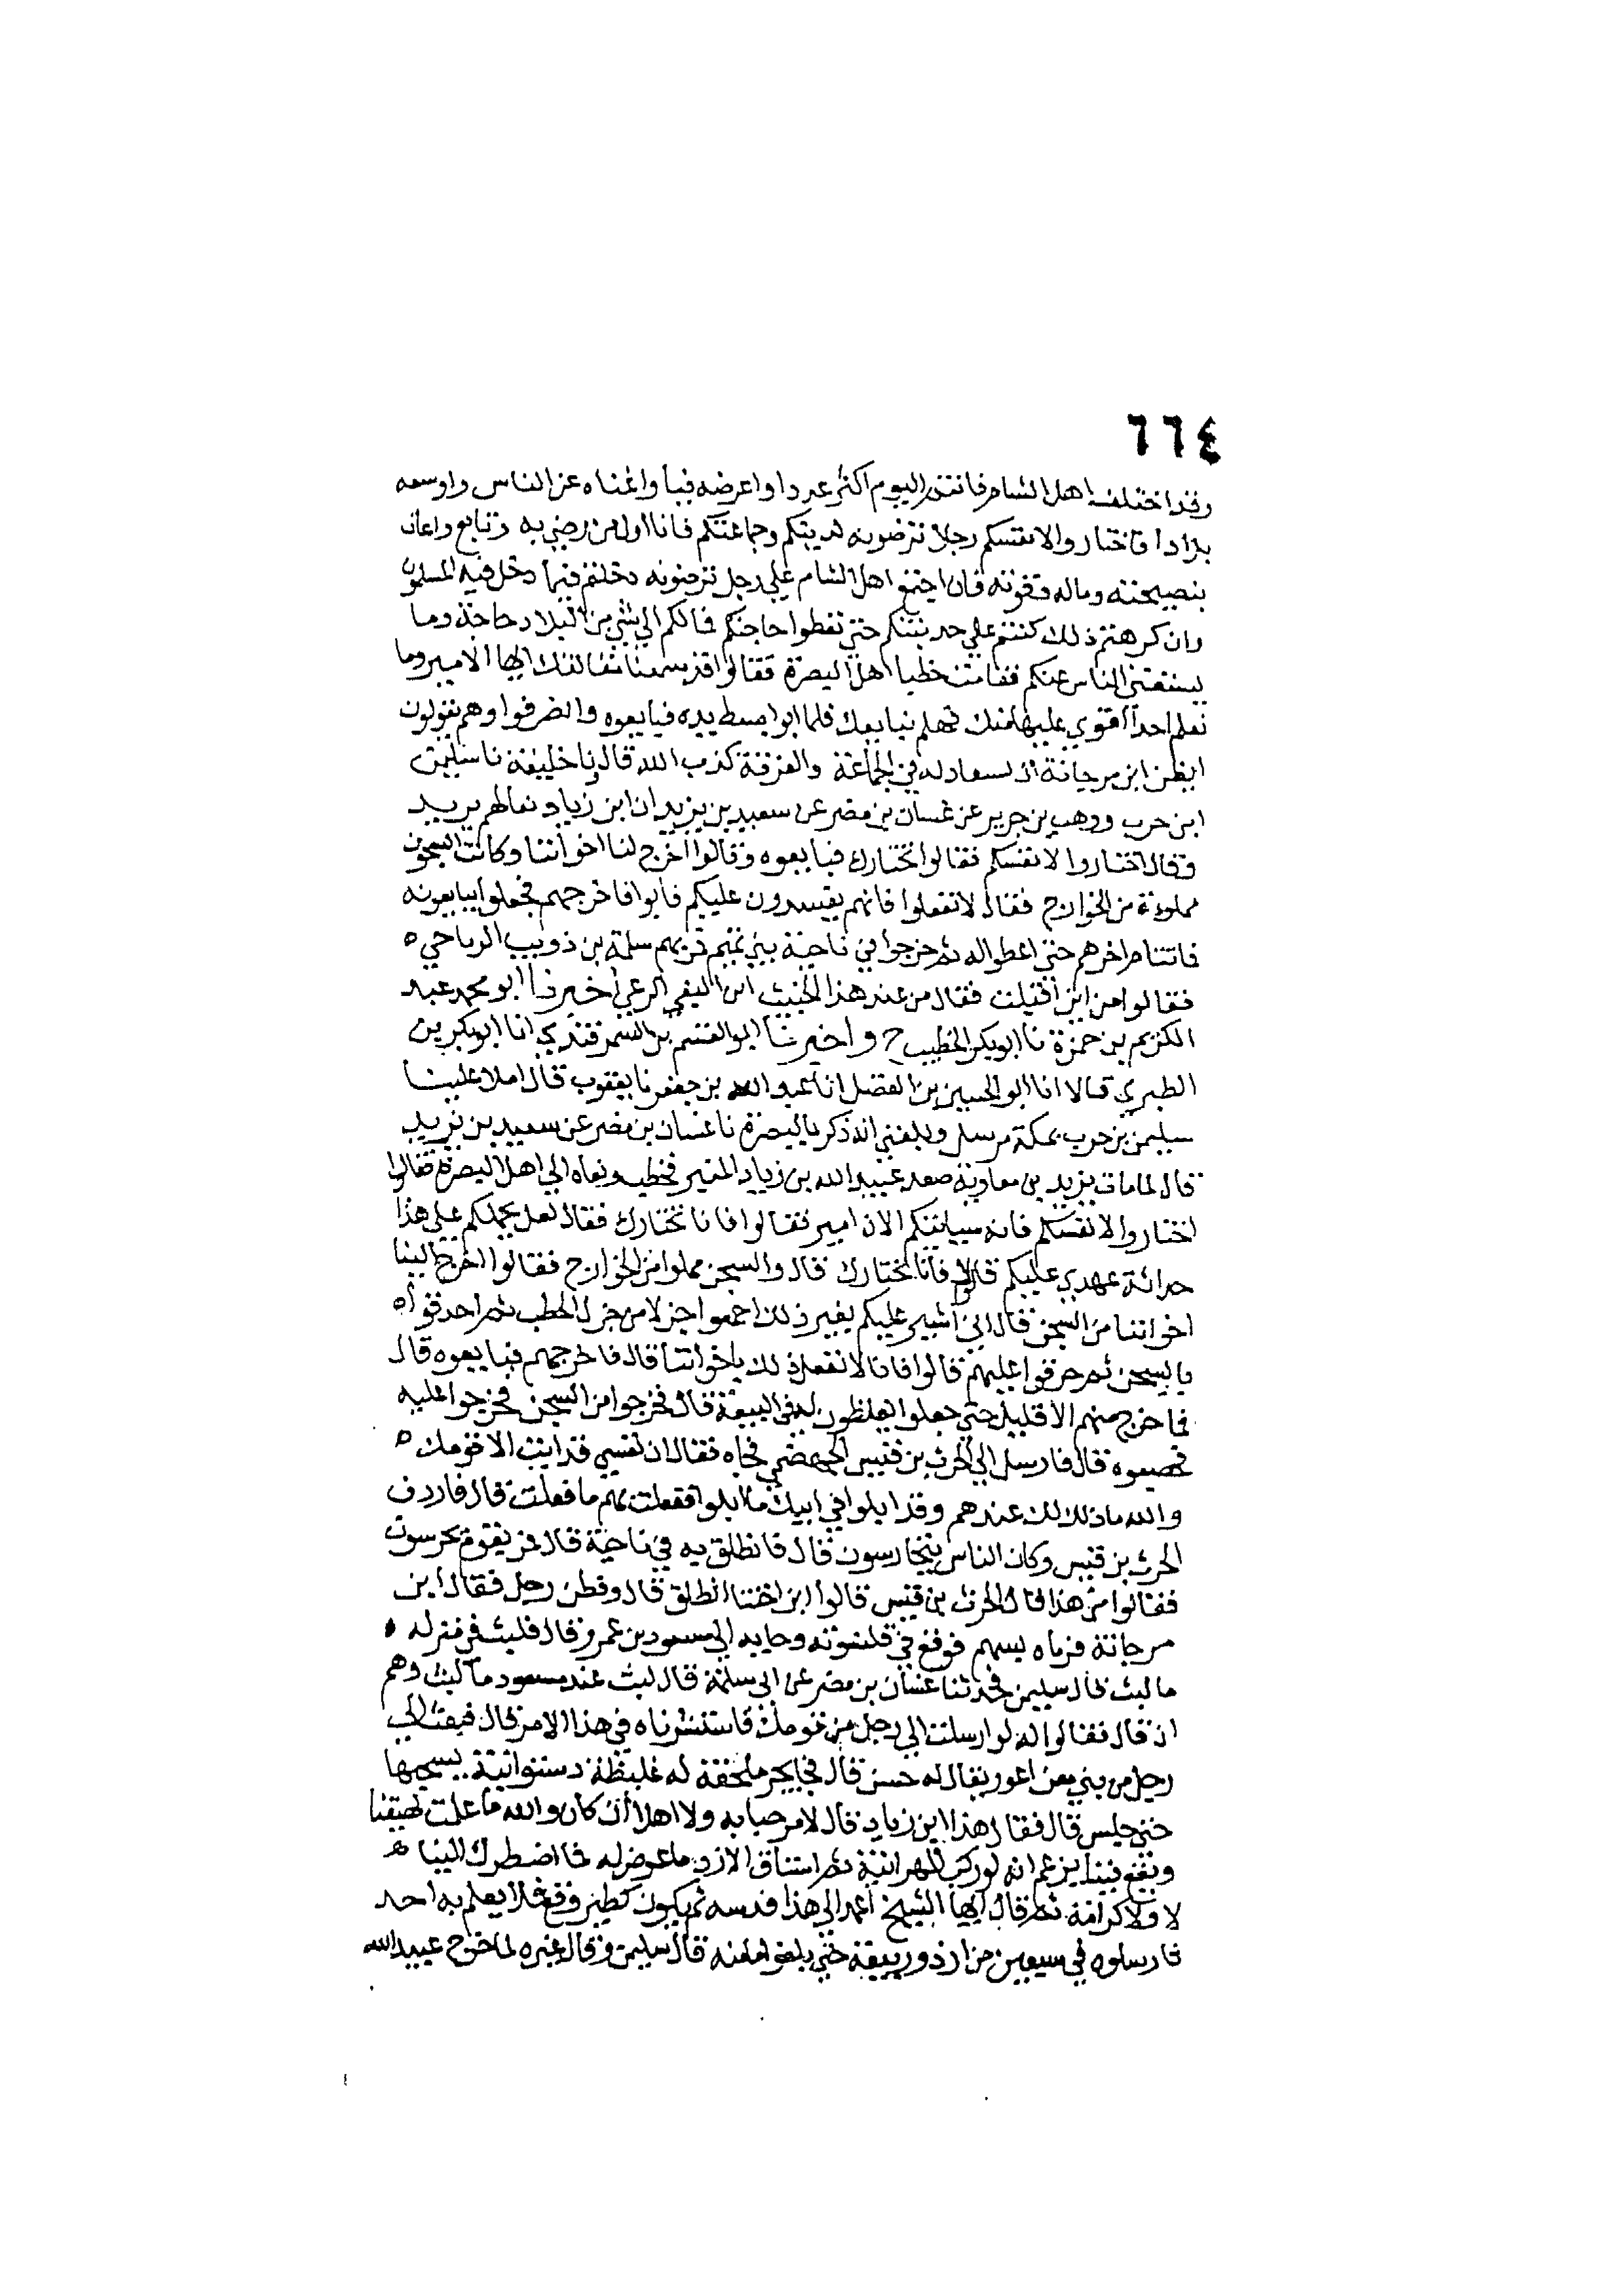 ٦٦٤
وقد اختلف اهل الشام فانتم اليوم اكثر عددا واعرضه فيا واغناه عن الناس واوسعه
بلادا فاختاروا لانفسكم رجلا ترضونه لدينكم وجماعتكم فانا اول من رضي به وتابع واعان
بنصيحته وماله وقوته فان اجتمع اهل الشام علي رجل ترضونه دخلتم فيما دخل فيه المسلمون
وان كرهتم ذلك كنتم علي حد يتكم حتي تعطوا حاجتكم فما لكم الي شي من البلاد حاجة وما
يستغني الناس عنكم فقامت خطبا اهل البصرة فقالوا قد سمعنا مقالتك ايها الامير وما
نعلم احدا اقوي عليها منك فهلم نبايعك فلما ابوا بسط يده فبايعوه وانصرفوا وهم يقولون
ايظن ابن مرجانة انا نستقاد له في الجماعة والفرقة كذب الله قال ونا خليفة نا سليمن
ابن حرب ووهب بن جرير عن غسان بن مضر عن سعيد بن يزيد ان ابن زياد نعا لهم يزيد
وقال اختاروا لانفسكم فقالوا نختارك فبايعوه وقالوا اخرج لنا اخواننا وكانت السجون
مملوءة من الخوارج فقال لا تفعلوا فانهم يفسدون عليكم فابوا فاخرجهم فجعلوا يبايعونه
فما تتام اخرهم حتي اغلظوا له ثم خرجوا في ناحية بني تميم فمر بهم سلمة بن ذويب الرياحي ه
فقالوا من اين اقبلت فقال من عند هذا الخبيث ابن البغي الرعي اخبرنا ابو محمد عبد
الكريم بن حمزة نا ابو بكر الخطيب ح واخبرنا ابو القسم بن السمرقندي انا ابو بكر بن
الطبري قالا انا ابو الحسين بن الفضل انا عبد الله بن جعفر نا يعقوب قال املا علينا
سليمن بن حرب بمكة مرسل وبلغني انه ذكر بالبصرة نا غسان بن مضر عن سعيد بن يزيد
قال لما مات يزيد بن معاوية صعد عبيد الله بن زياد المنبر فخطب ونعاه الي اهل البصرة فقالوا
اختاروا لانفسكم فانه سياتيكم الان امير فقالوا فانا نختارك فقال لعل يحملكم علي هذا
حداثة عهدي عليكم قالوا فانا نختارك قال والسجن مملوا من الخوارج فقالوا اخرج الينا
اخواننا من السجن قال اني اشير عليكم بغير ذلك اجمعوا جزلا من جزل الحطب ثم احدقوا ه
بالسجن ثم حرقوا عليهم قالوا فانا لا نفعل ذلك باخواننا قال فاخرجهم فبايعوه قال
فما خرج منهم الا قليل حتي جعلوا يغلظون له في البيعة قال فخرجوا من السجن فخرجوا عليه
فحصبوه قال فارسل الي الحرث بن قيس الجهضمي فجاه فقال ان نفسي قد ابت الا قومك ه
والله ماذلك لك عندهم وقد ابلوا في ابيك ما ابلوا ففعلت بهم ما فعلت قال فاردف
الحرث بن قيس وكان الناس يتحارسون قال فانطلق به في ناحية قال فمر بقوم يحرسون
فقالوا من هذا قال الحرث بن قيس قالوا ابن اختنا انطلق قال وفطن رجل فقال ابن
مرجانة فرماه بسهم فوقع في قلنسوته وجا به الي مسعود بن عمرو قال فلبث في منزله ه
ما لبث قال سليمن فحدثنا غسان بن مضر عن ابي سلمة قال لبث عند مسعود ما لبث وهم
اذ قال فقالوا له لو ارسلت الي رجل من قومك فاستشرناه في هذا الامر قال فبعث الي
رجل من بني معن اعور يقال له حسن قال فجا يجر ملحفة له غليظة دستوانية يسحبها
حتي جلس قال فقال هذا ابن زياد قال لا مرحبا به ولا اهلا ان كان والله ما علمت لهيقنا
ويقع فينا يزعم انه لو ركب المهرانية ثم استاق الازد ما عرض له فما اضطرك الينا ه
لا ولا كرامة ثم قال ايها الشيخ اعمد الي هذا فدسه ثم يكون كطير وقع فلا يعلم به احد
فارسلوه في سبعين من ازد وربيعة حتي بلغوا مامنه قال سليمن وقال غيره لما خرج عبيد الله